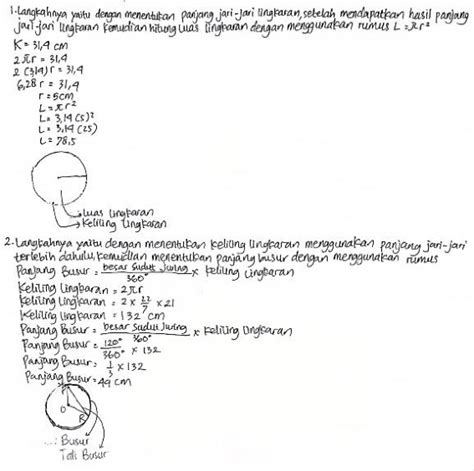 1. Langkahnya yaitu dengan menentukan panjang jari-jari lingkaran, setelah mendapatkan hasil panjang
jari jari lingkaran kemudian hitung luas lingkaran dengan menggunakan rumus L = πr²
K = 31,4 cm
2πr = 31,4
2 (3,14) r = 31,4
6,28 r = 31,4
r = 5cm
L = πr²
L = 3,14 (5)²
L = 3,14 (25)
L = 78,5
Luas lingkaran
Keliling lingkaran
2. Langkahnya yaitu dengan menentukan keliling lingkaran menggunakan panjang jari-jari
terlebih dahulu, kemudian menentukan panjang busur dengan menggunakan rumus
Panjang Busur = besar sudut Juring / 360° × keliling lingkaran
Keliling Lingkaran = 2πr
Keliling Lingkaran = 2 × 22/7 × 21
Keliling lingkaran = 132 cm
Panjang Busur = besar sudut Juring / 360° × keliling lingkaran
Panjang Busur = 120°/360° × 132
Panjang Busur = 1/3 × 132
Panjang Busur = 44 cm
O
R
...: Busur
Tali Busur